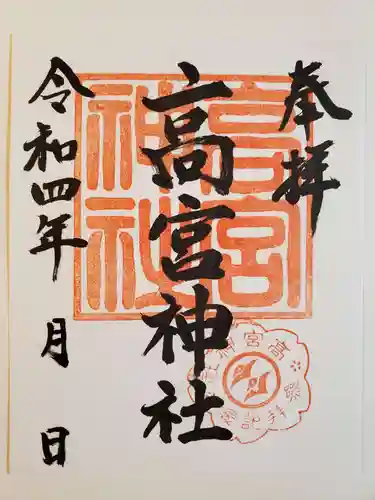 奉拝
高宮神社
令和四年 月 日
高宮神社
高宮神社参拝記念